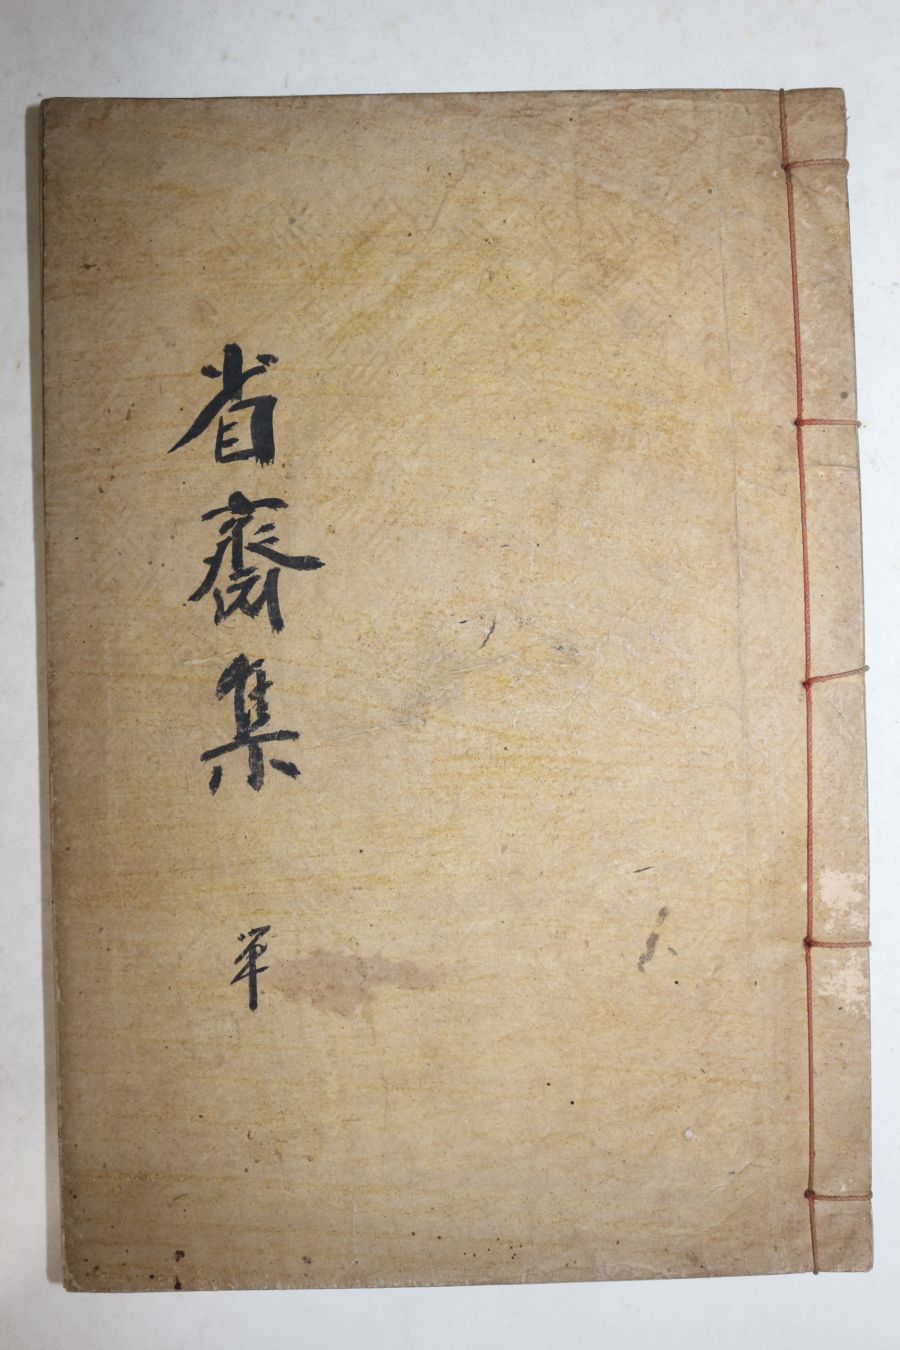 省齋集
單